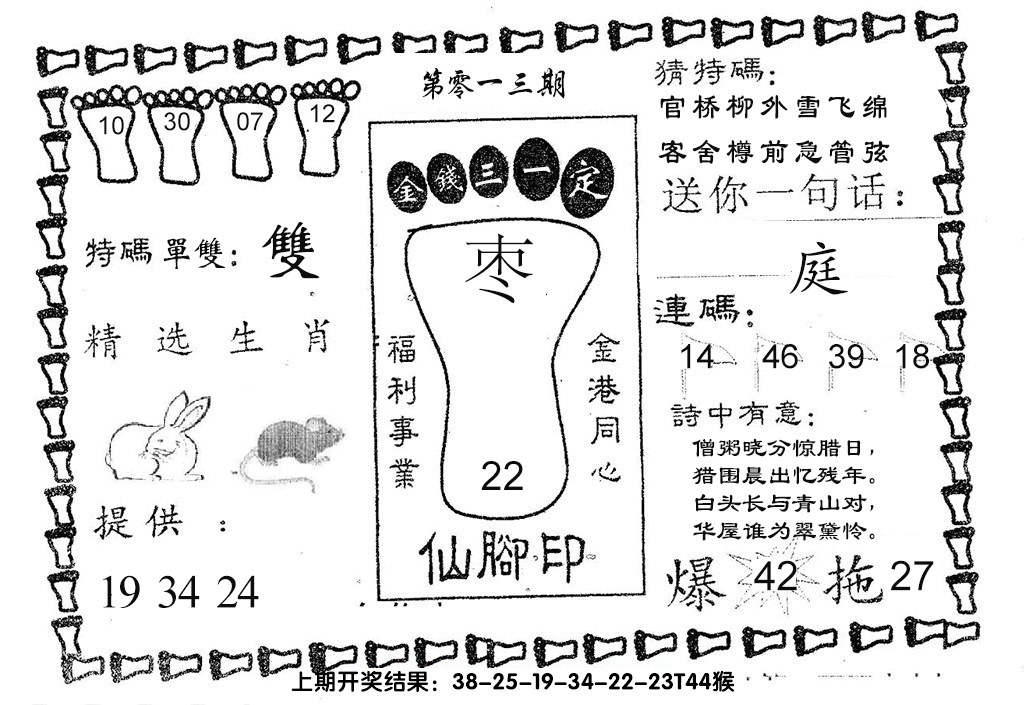 第零一三期
10 30 07 12
特碼單雙：雙
精选生肖
提供：
19 34 24
金錢三一定
枣
福利事業
金港同心
22
仙腳印
猜特碼：
官桥柳外雪飞绵
客舍樽前急管弦
送你一句话：
庭
連碼：
14 46 39 18
詩中有意：
僧粥晓分惊腊日，
猎围晨出忆残年。
白头长与青山对，
华屋谁为翠黛怜。
爆 42 拖 27
上期开奖结果：38-25-19-34-22-23T44猴